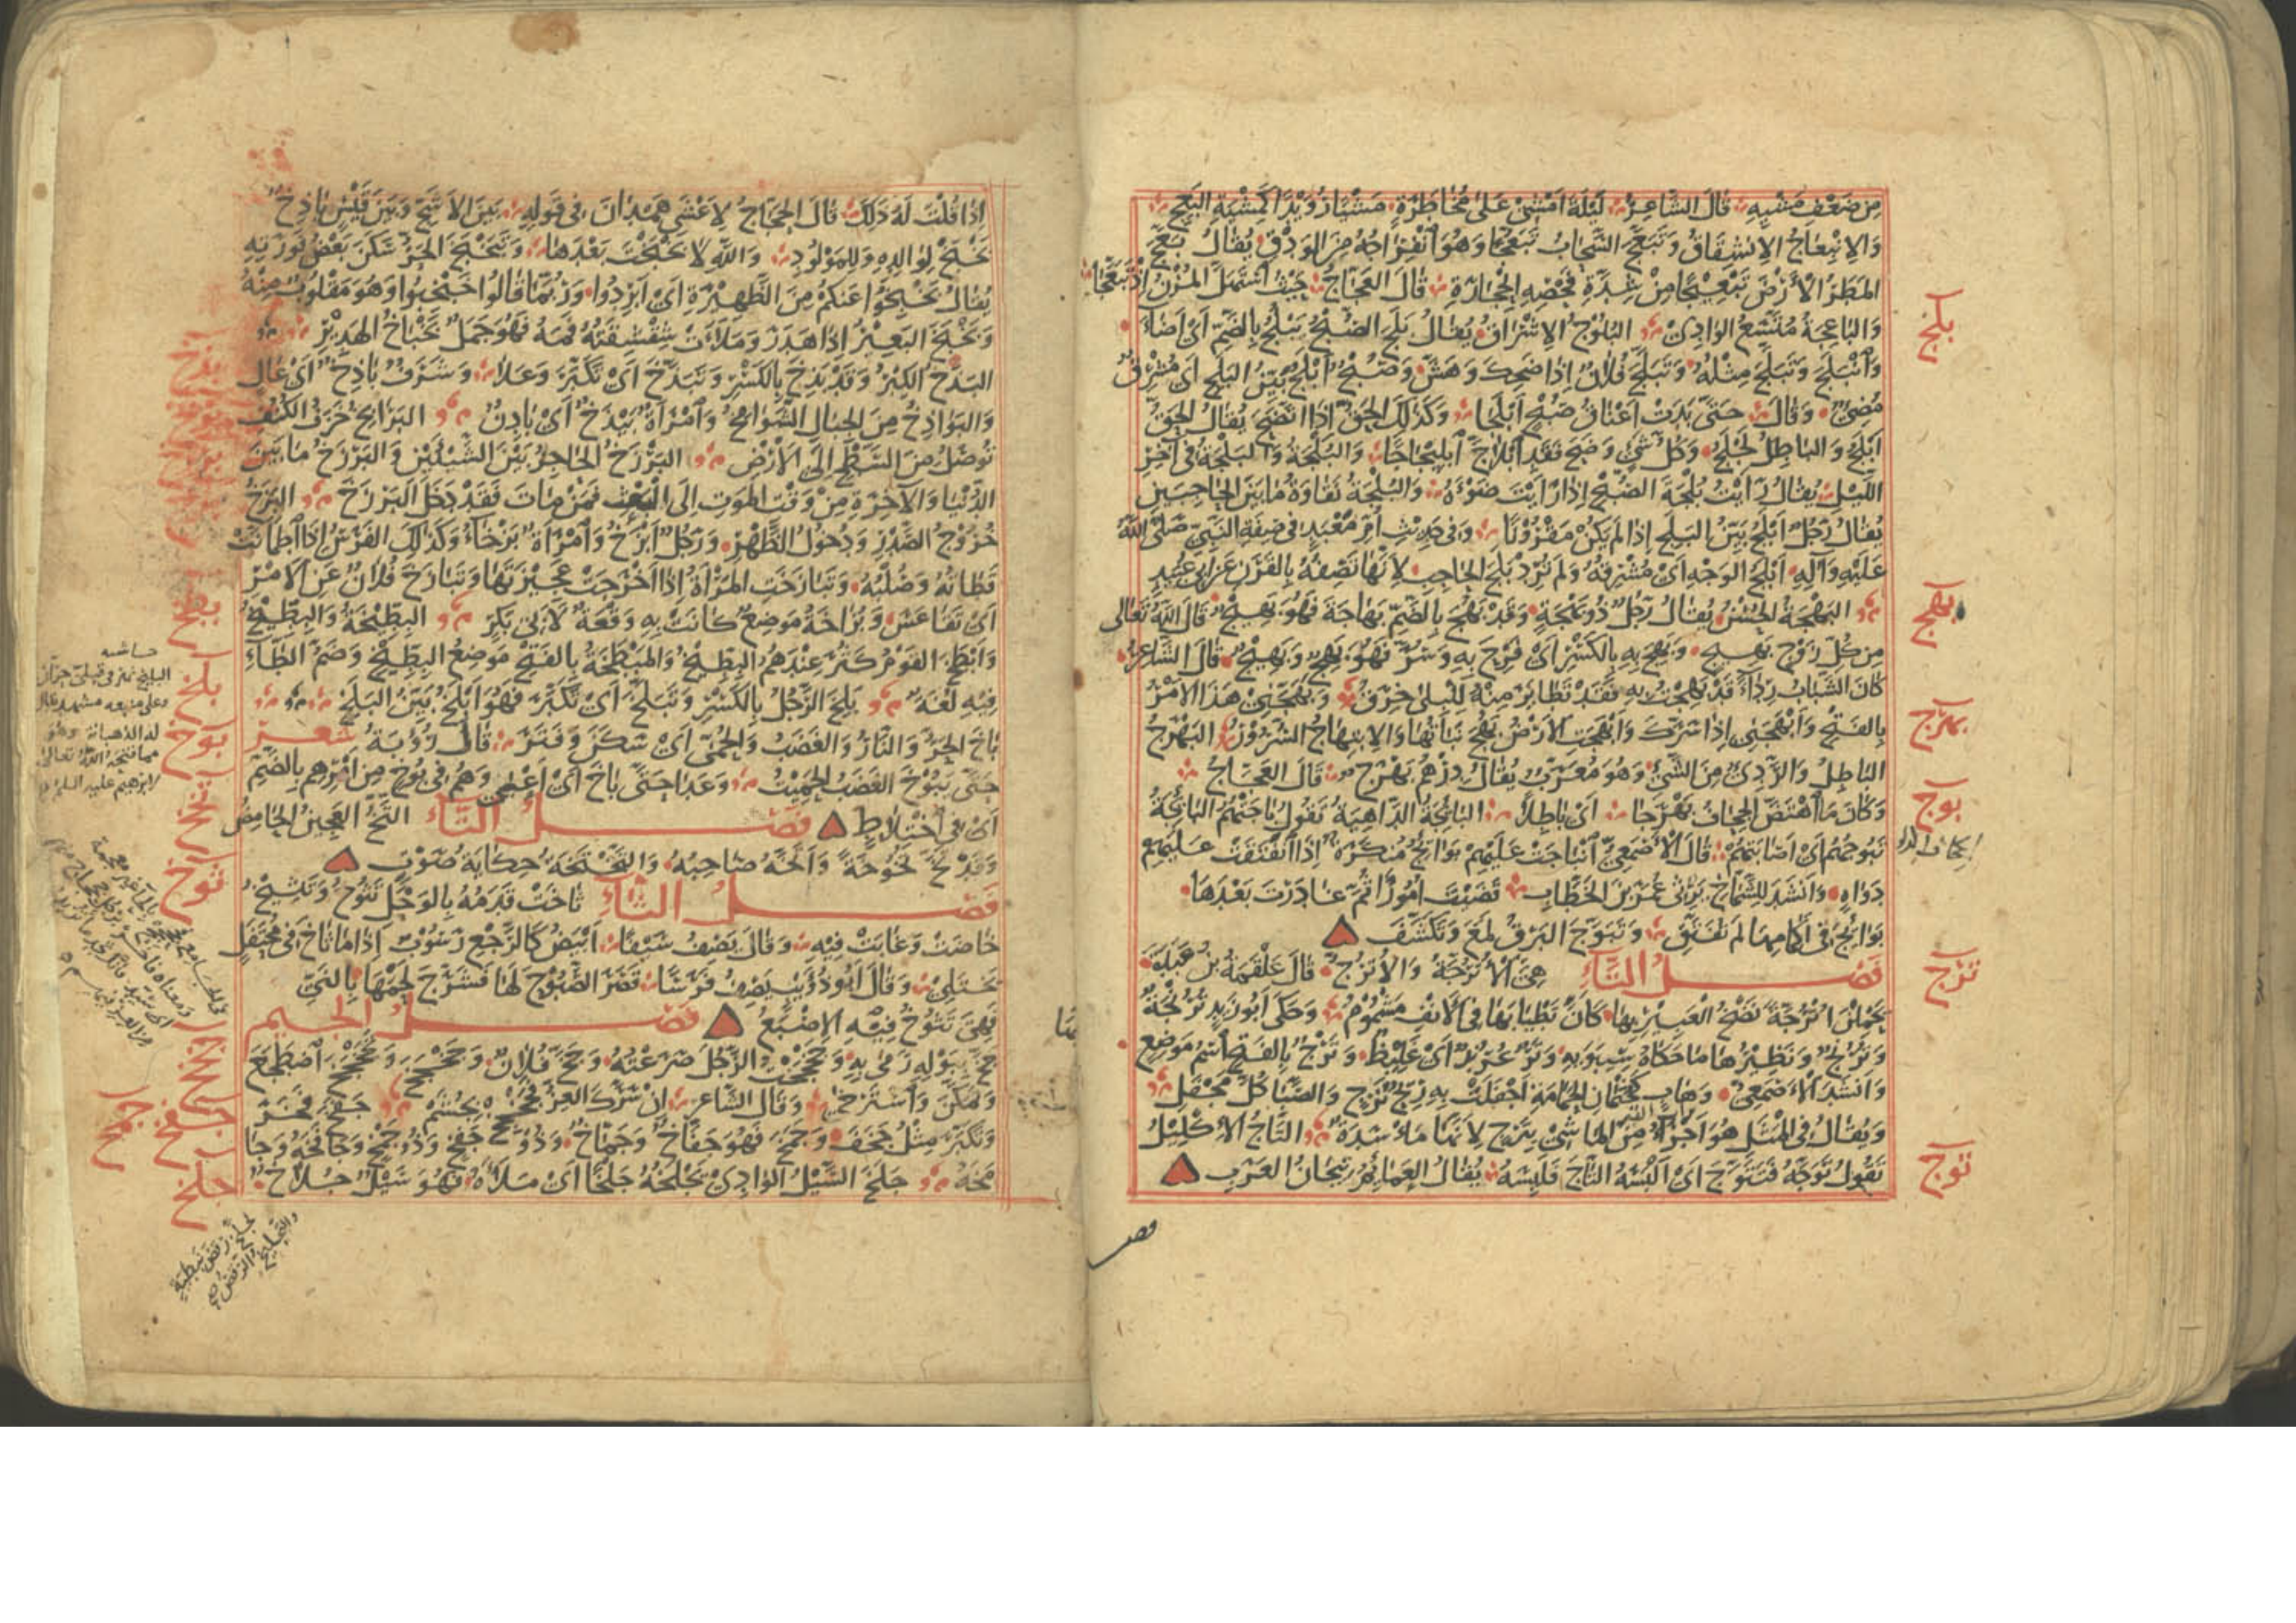 مِنْ ضَعْفِ مَشْيِهِ قَالَ الشَّاعِرُ لَيْلَةَ اَمْشِيْ عَلٰى مُخَاطَرَةٍ مَشْيًا رُوَيْدًا كَمِشْيَةِ البَعِجِ
وَالاِنْبِعَاجُ الاِنْشِقَاقُ وَتَبَعَّجَ السَّحَابُ تَبَعُّجًا وَهُوَ انْفِرَاجُهُ مِنَ الوَدْقِ يُقَالُ بَعَّجَ
المَطَرُ الاَرْضَ تَبْعِيْجًا مِنْ شِدَّةِ فَحْصِهِ الحِجَارَةَ قَالَ العَجَّاجُ حَيْثُ اسْتَهَلَّ المُزْنُ اِذْ تَبَعَّجَا
وَالبَاعِجَةُ مُتَّسَعُ الوَادِيْ البُلُوْجُ الاِشْرَاقُ يُقَالُ بَلَجَ الصُّبْحُ يَبْلُجُ بِالضَّمِّ اَيْ اَضَاءَ
وَانْبَلَجَ وَتَبَلَّجَ مِثْلُهُ وَتَبَلَّجَ فُلَانٌ اِذَا ضَحِكَ وَهَشَّ وَصُبْحٌ اَبْلَجُ بَيِّنُ البَلَجِ اَيْ مُشْرِقٌ
مُضِيْءٌ وَقَالَ حَتّٰى بَدَتْ اَعْنَاقُ صُبْحٍ اَبْلَجَا وَكَذٰلِكَ الحَقُّ اِذَا اتَّضَحَ يُقَالُ الحَقُّ
اَبْلَجُ وَالبَاطِلُ لَجْلَجٌ وَكُلُّ شَيْءٍ وَضَحَ فَقَدِ ابْلَاجَّ ابْلِيْجَاجًا وَالبُلْجَةُ وَالبَلْجَةُ فِي آخِرِ
اللَّيْلِ يُقَالُ رَاَيْتُ بُلْجَةَ الصُّبْحِ اِذَا رَاَيْتَ ضَوْءَهُ وَالبُلْجَةُ نَقَاوَةُ مَا بَيْنَ الحَاجِبَيْنِ
يُقَالُ رَجُلٌ اَبْلَجُ بَيِّنُ البَلَجِ اِذَا لَمْ يَكُنْ مَقْرُوْنًا وَفِي حَدِيْثِ اُمِّ مَعْبَدٍ فِي صِفَةِ النَّبِيِّ صَلَّى اللّٰهُ
عَلَيْهِ وَآلِهِ اَبْلَجُ الوَجْهِ اَيْ مُشْرِقُهُ وَلَمْ تُرِدْ بَلَجَ الحَاجِبِ لِاَنَّهَا تَصِفُهُ بِالقَرَنِ عَنْ اَبِي عُبَيْدٍ
البَهْجَةُ الحُسْنُ يُقَالُ رَجُلٌ ذُوْ بَهْجَةٍ وَقَدْ بَهُجَ بِالضَّمِّ بَهَاجَةً فَهُوَ بَهِيْجٌ قَالَ اللّٰهُ تَعَالٰى
مِنْ كُلِّ زَوْجٍ بَهِيْجٍ وَبَهِجَ بِهِ بِالكَسْرِ اَيْ فَرِحَ بِهِ وَسُرَّ فَهُوَ بَهِجٌ وَبَهِيْجٌ قَالَ الشَّاعِرُ
كَانَ الشَّبَابُ رِدَاءً قَدْ بَهِجْتُ بِهِ فَقَدْ تَطَايَرَ مِنْهُ لِلْبِلٰى خِرَقُ وَبَهَجَنِيْ هَذَا الاَمْرُ
بِالفَتْحِ وَاَبْهَجَنِيْ اِذَا سَرَّكَ وَاَبْهَجَتِ الاَرْضُ بَهُجَ نَبَاتُهَا وَالاِبْتِهَاجُ السُّرُوْرُ البَهْرَجُ
البَاطِلُ وَالرَّدِيْءُ مِنَ الشَّيْءِ وَهُوَ مُعَرَّبٌ يُقَالُ دِرْهَمٌ بَهْرَجٌ قَالَ العَجَّاجُ
وَكَانَ مَا اهْتَضَّ الجِحَافُ بَهْرَجَا اَيْ بَاطِلًا البَائِجَةُ الدَّاهِيَةُ تَقُوْلُ بَاجَتْهُمُ البَائِجَةُ
تَبُوْجُهُمْ اَيْ اَصَابَتْهُمْ قَالَ الاَصْمَعِيُّ انْبَاجَتْ عَلَيْهِمْ بَوَائِجُ مُنْكَرَةٌ اِذَا انْفَتَقَتْ عَلَيْهِمْ
دَوَاهٍ وَاَنْشَدَ لِلشَّمَّاخِ يَرْثِيْ عُمَرَ بْنَ الخَطَّابِ قَضَيْتَ اُمُوْرًا ثُمَّ غَادَرْتَ بَعْدَهَا
بَوَائِجَ فِي اَكْمَامِهَا لَمْ تَفَتَّقِ وَتَبَوَّجَ البَرْقُ لَمَعَ وَتَكَشَّفَ
فَصْلُ التَّاءِ هِيَ الاُتْرُجَّةُ وَالاُتْرُجُّ قَالَ عَلْقَمَةُ بْنُ عَبَدَةَ
يَحْمِلْنَ اُتْرُجَّةً نَضْخُ العَبِيْرِ بِهَا كَاَنَّ تَطْيَابَهَا فِي الاَنْفِ مَشْمُوْمُ وَحَكٰى اَبُوْ زَيْدٍ تُرُنْجَةٌ
وَتُرُنْجٌ وَنَظِيْرُهَا مَا حَكَاهُ سِيْبَوَيْهِ وَتَرٌ عُرُنْدٌ اَيْ غَلِيْظٌ وَتَرْجُ بِالفَتْحِ اسْمُ مَوْضِعٍ
وَاَنْشَدَ الاَصْمَعِيُّ وَهَابٍ كَجُثْمَانِ الحَمَامَةِ اَجْفَلَتْ بِهِ رِيْحُ تَرْجٍ وَالصَّبَا كُلَّ مُجْفَلِ
وَيُقَالُ فِي المَثَلِ هُوَ اَجْرَأُ مِنَ المَاشِيْ بِتَرْجٍ لِاَنَّهَا مَاْسَدَةٌ التَّاجُ الاِكْلِيْلُ
تَقُوْلُ تَوَّجَهُ فَتَتَوَّجَ اَيْ اَلْبَسَهُ التَّاجَ فَلَبِسَهُ يُقَالُ العَمَائِمُ تِيْجَانُ العَرَبِ
بلج
بهج
بهرج
بوج
ترج
توج
فصل
اِذَا قُلْتَ لَهُ ذٰلِكَ قَالَ الحَجَّاجُ لِاَعْشٰى هَمْدَانَ فِي قَوْلِهِ بَيْنَ الاَشَجِّ وَبَيْنَ قَيْسٍ بَاذِخٌ
بَخْ بَخْ لِوَالِدِهِ وَلِلْمَوْلُوْدِ وَاللّٰهِ لَا بَخْبَخْتَ بَعْدَهَا وَتَبَخْبَخَ الحَرُّ سَكَنَ بَعْضُ فَوْرَتِهِ
يُقَالُ بَخْبِخُوْا عَنْكُمْ مِنَ الظَّهِيْرَةِ اَيْ اَبْرِدُوْا وَرُبَّمَا قَالُوا خَبْخِبُوا وَهُوَ مَقْلُوْبٌ مِنْهُ
وَبَخْبَخَ البَعِيْرُ اِذَا هَدَرَ وَمَلَاَتْ شِقْشِقَتُهُ فَمَهُ فَهُوَ جَمَلٌ بَخْبَاخُ الهَدِيْرِ
البَذَخُ الكِبْرُ وَقَدْ بَذِخَ بِالكَسْرِ وَتَبَذَّخَ اَيْ تَكَبَّرَ وَعَلَا وَشَرَفٌ بَاذِخٌ اَيْ عَالٍ
وَالبَوَاذِخُ مِنَ الجِبَالِ الشَّوَامِخُ وَامْرَاَةٌ بَيْذَخٌ اَيْ بَادِنٌ البَرَابِخُ خَزَفُ الكُنُفِ
تُوْصَلُ مِنَ السَّطْحِ اِلَى الاَرْضِ البَرْزَخُ الحَاجِزُ بَيْنَ الشَّيْئَيْنِ وَالبَرْزَخُ مَا بَيْنَ
الدُّنْيَا وَالآخِرَةِ مِنْ وَقْتِ المَوْتِ اِلَى البَعْثِ فَمَنْ مَاتَ فَقَدْ دَخَلَ البَرْزَخَ البَزَخُ
خُرُوْجُ الصَّدْرِ وَدُخُوْلُ الظَّهْرِ وَرَجُلٌ اَبْزَخُ وَامْرَاَةٌ بَزْخَاءُ وَكَذٰلِكَ الفَرَسُ اِذَا اطْمَاَنَّتْ
قَطَاتُهُ وَصُلْبُهُ وَتَبَازَخَتِ المَرْاَةُ اِذَا اَخْرَجَتْ عَجِيْزَتَهَا وَتَبَازَخَ فُلَانٌ عَنِ الاَمْرِ
اَيْ تَقَاعَسَ وَبُزَاخَةُ مَوْضِعٌ كَانَتْ بِهِ وَقْعَةٌ لِاَبِي بَكْرٍ البِطِّيْخَةُ وَالبِطِّيْخُ
وَاَبْطَخَ القَوْمُ كَثُرَ عِنْدَهُمُ البِطِّيْخُ وَالمَبْطَخَةُ بِالفَتْحِ مَوْضِعُ البِطِّيْخِ وَضَمُّ الطَّاءِ
فِيْهِ لُغَةٌ بَلِخَ الرَّجُلُ بِالكَسْرِ وَتَبَلَّخَ اَيْ تَكَبَّرَ فَهُوَ اَبْلَخُ بَيِّنُ البَلَخِ
بَاخَ الحَرُّ وَالنَّارُ وَالغَضَبُ وَالحُمّٰى اَيْ سَكَنَ وَفَتَرَ قَالَ رُؤْبَةُ شعر
حَتّٰى يَبُوْخَ الغَضَبُ الحَمِيْتُ وَعَدَا حَتّٰى بَاخَ اَيْ اَعْيٰى وَهُمْ فِي بُوْخٍ مِنْ اَمْرِهِمْ بِالضَّمِّ
اَيْ فِي اخْتِلَاطٍ فَصْلُ التَّاءِ التَّخُّ العَجِيْنُ الحَامِضُ
وَقَدْ تَخَّ تُخُوْخَةً وَاَتَخَّهُ صَاحِبُهُ وَالتَّخْتَخَةُ حِكَايَةُ صَوْتٍ
فَصْلُ الثَّاءِ ثَاخَتْ قَدَمُهُ بِالوَحَلِ تَثُوْخُ وَتَثِيْخُ
خَاضَتْ وَغَابَتْ فِيْهِ وَقَالَ يَصِفُ سَيْفًا اَبْيَضُ كَالرَّجْعِ رَسُوْبٌ اِذَا مَا ثَاخَ فِي مُحْتَفَلٍ
يَخْتَلِيْ وَقَالَ اَبُوْ ذُؤَيْبٍ يَصِفُ فَرَسًا قَصَرَ الصَّبُوْحَ لَهَا فَشَرَّجَ لَحْمَهَا بِالنَّيِّ
فَهِيَ تَثُوْخُ فِيْهِ الاِصْبَعُ فَصْلُ الجِيْمِ
جَخَّ بِبَوْلِهِ رَمٰى بِهِ وَجَخْجَخْتُ الرَّجُلَ صَرَعْتُهُ وَجَخَّ فُلَانٌ وَجَخْجَخَ وَتَجَخْجَخَ اضْطَجَعَ
وَتَمَكَّنَ وَاسْتَرْخٰى وَقَالَ الشَّاعِرُ اِنْ سَرَّكَ العِزُّ فَجَخْجِخْ بِجُشَمْ جَفَخَ فَخَرَ
وَتَكَبَّرَ مِثْلُ جَخَفَ وَجَمَخَ فَهُوَ جَفَّاخٌ وَجَمَّاخٌ وَذُوْ جَفْخٍ وَذُوْ جَمْخٍ وَجَافَخَهُ وَجَا
مَخَهُ جَلَخَ السَّيْلُ الوَادِيَ يَجْلَخُهُ جَلْخًا اَيْ مَلَاَهُ فَهُوَ سَيْلٌ جُلَاخٌ
بذخ
بطخ
بلخ
بوخ
تخخ
ثوخ
جخخ
جفخ
جمخ
جلخ
حاشيه